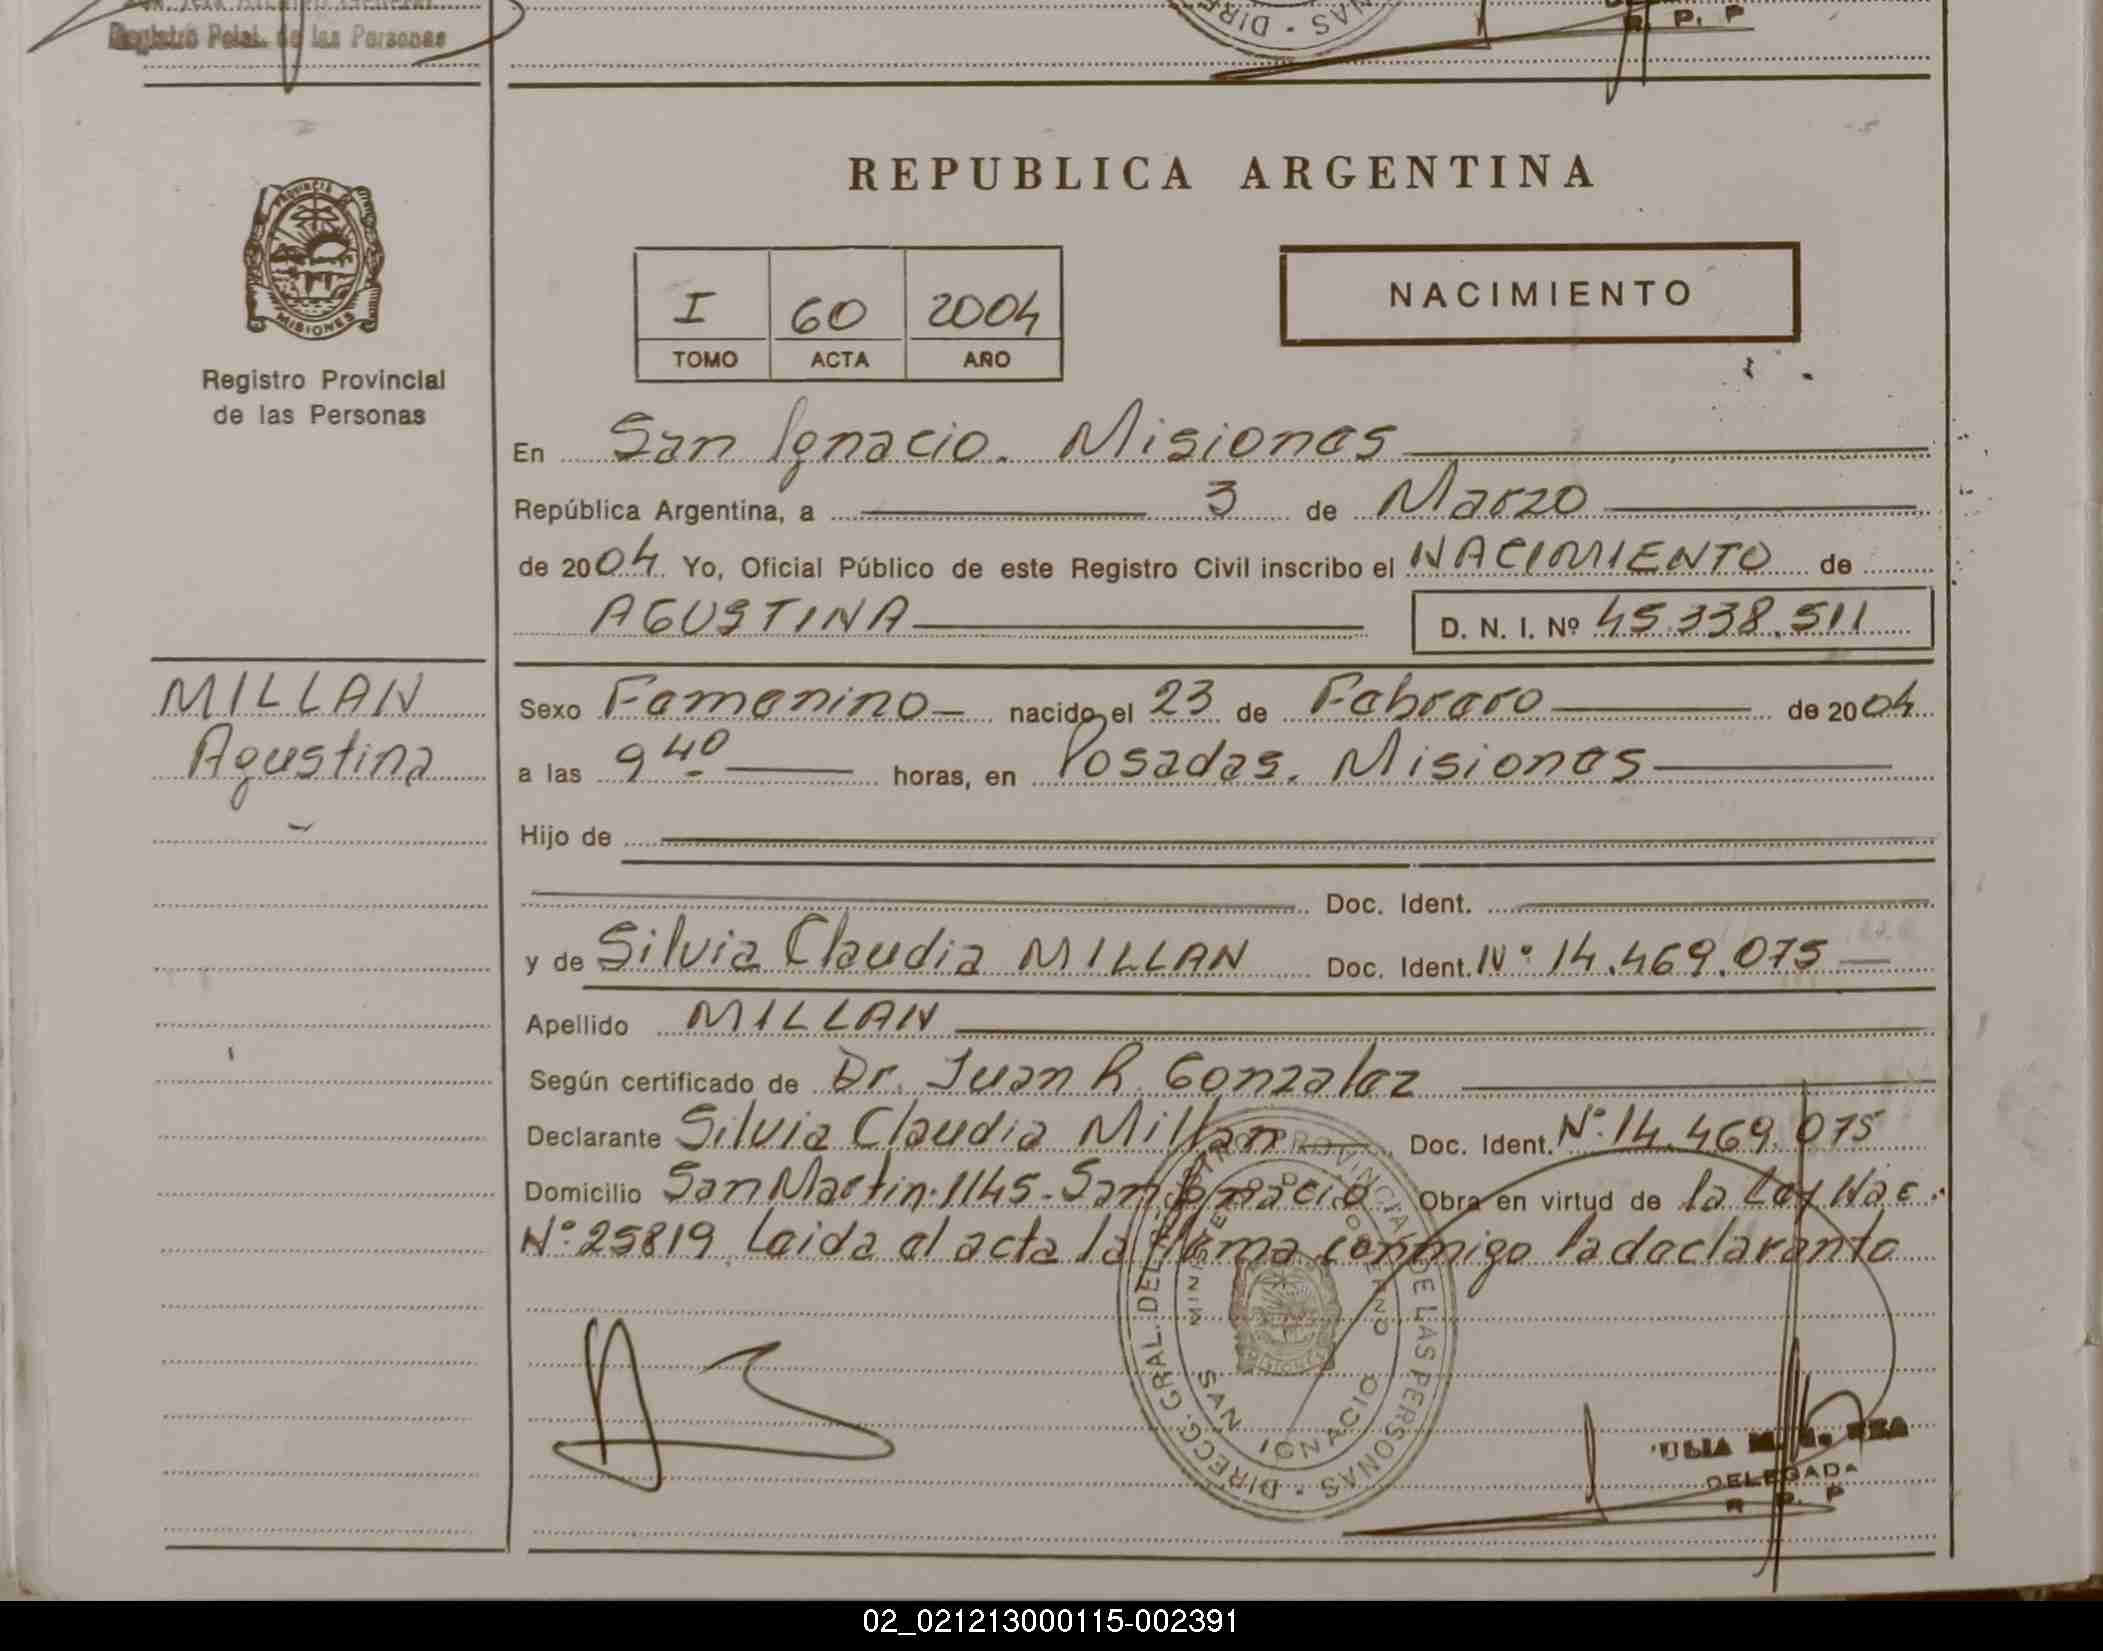 Registro Pcial. de las Personas
R. P. P
DIRE
NAS
REPUBLICA ARGENTINA
PROVINCIA
MISIONES
Registro Provincial
de las Personas
I 60 2004
TOMO ACTA AÑO
NACIMIENTO
En San Ignacio. Misiones
República Argentina, a 3 de Marzo
de 2004 Yo, Oficial Público de este Registro Civil inscribo el NACIMIENTO de
AGUSTINA D. N. I. Nº 45.338.511
MILLAN
Agustina
Sexo Femenino nacido el 23 de Febrero de 2004
a las 9 40 horas, en Posadas. Misiones
Hijo de
Doc. Ident.
y de Silvia Claudia MILLAN Doc. Ident. Nº 14.469.075
Apellido MILLAN
Según certificado de Dr. Juan R. Gonzalez
Declarante Silvia Claudia Millan Doc. Ident. Nº 14.469.075
Domicilio San Martin. 1145. San Ignacio Obra en virtud de la Ley Nac.
Nº 25819. Leida el acta la firma conmigo la declarante
DIRECC. GRAL. DEL REGISTRO PROVINCIAL DE LAS PERSONAS
MINISTERIO DE GOBIERNO
MISIONES
SAN IGNACIO
DELEGADA
R. P. P
02_021213000115-002391